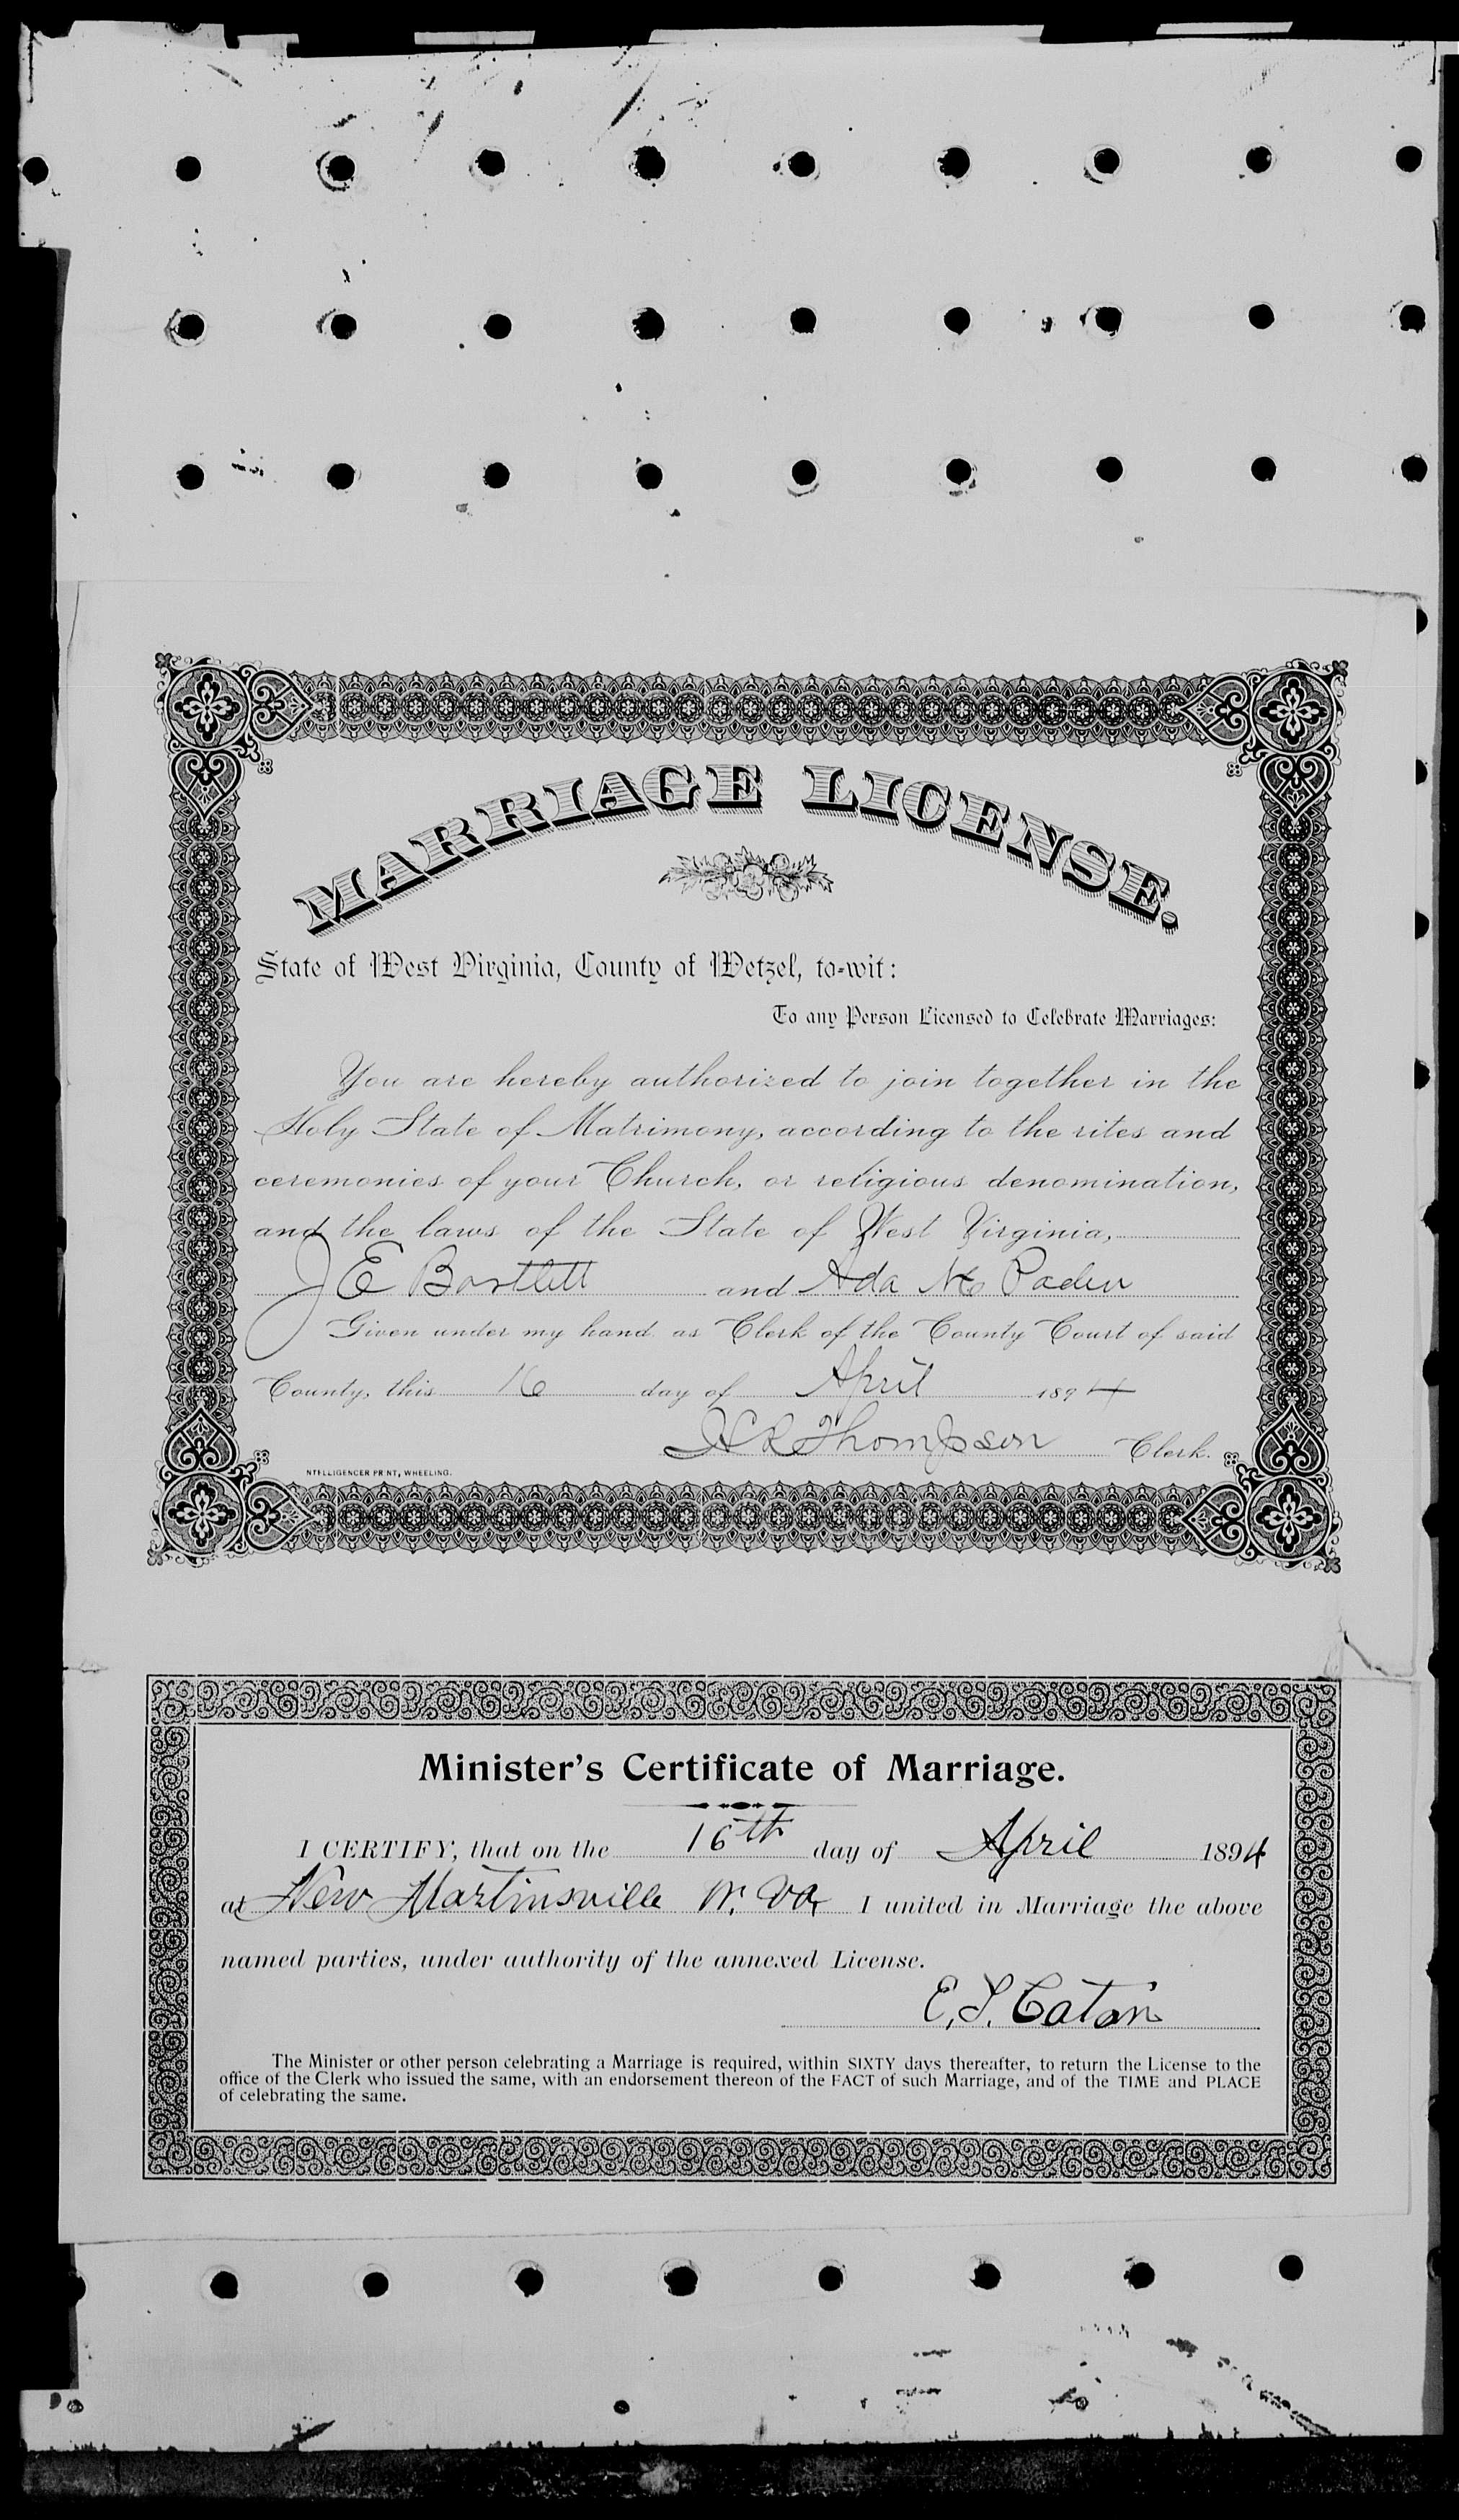 MARRIAGE LICENSE.
State of West Virginia, County of Wetzel, to-wit:
To any Person Licensed to Celebrate Marriages:
You are hereby authorized to join together in the
Holy State of Matrimony, according to the rites and
ceremonies of your Church, or religious denomination,
and the laws of the State of West Virginia,
J E Bartlett and Ada Mc Paden
Given under my hand as Clerk of the County Court of said
County, this 16 day of April 1894
H R Thompson Clerk.
NTELLIGENCER PRINT, WHEELING.
Minister's Certificate of Marriage.
I CERTIFY, that on the 16th day of April 1894
at New Martinsville W. Va, I united in Marriage the above
named parties, under authority of the annexed License.
E. S. Caton
The Minister or other person celebrating a Marriage is required, within SIXTY days thereafter, to return the License to the
office of the Clerk who issued the same, with an endorsement thereon of the FACT of such Marriage, and of the TIME and PLACE
of celebrating the same.